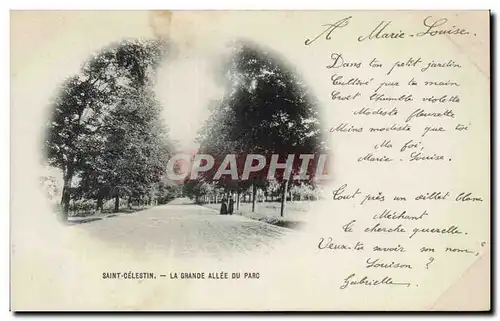 A Marie-Louise.
Dans ton petit jardin
Cultivé par ta main
Croît l'humble violette
Modeste fleurette
Moins modeste que toi
Ma foi,
Marie-Louise.
Tout près un œillet blanc
Méchant
Te cherche querelle.
Veux-tu savoir son nom,
Louison ?
Gabrielle.
CPAPHIL.COM
SAINT-CÉLESTIN. — LA GRANDE ALLÉE DU PARC